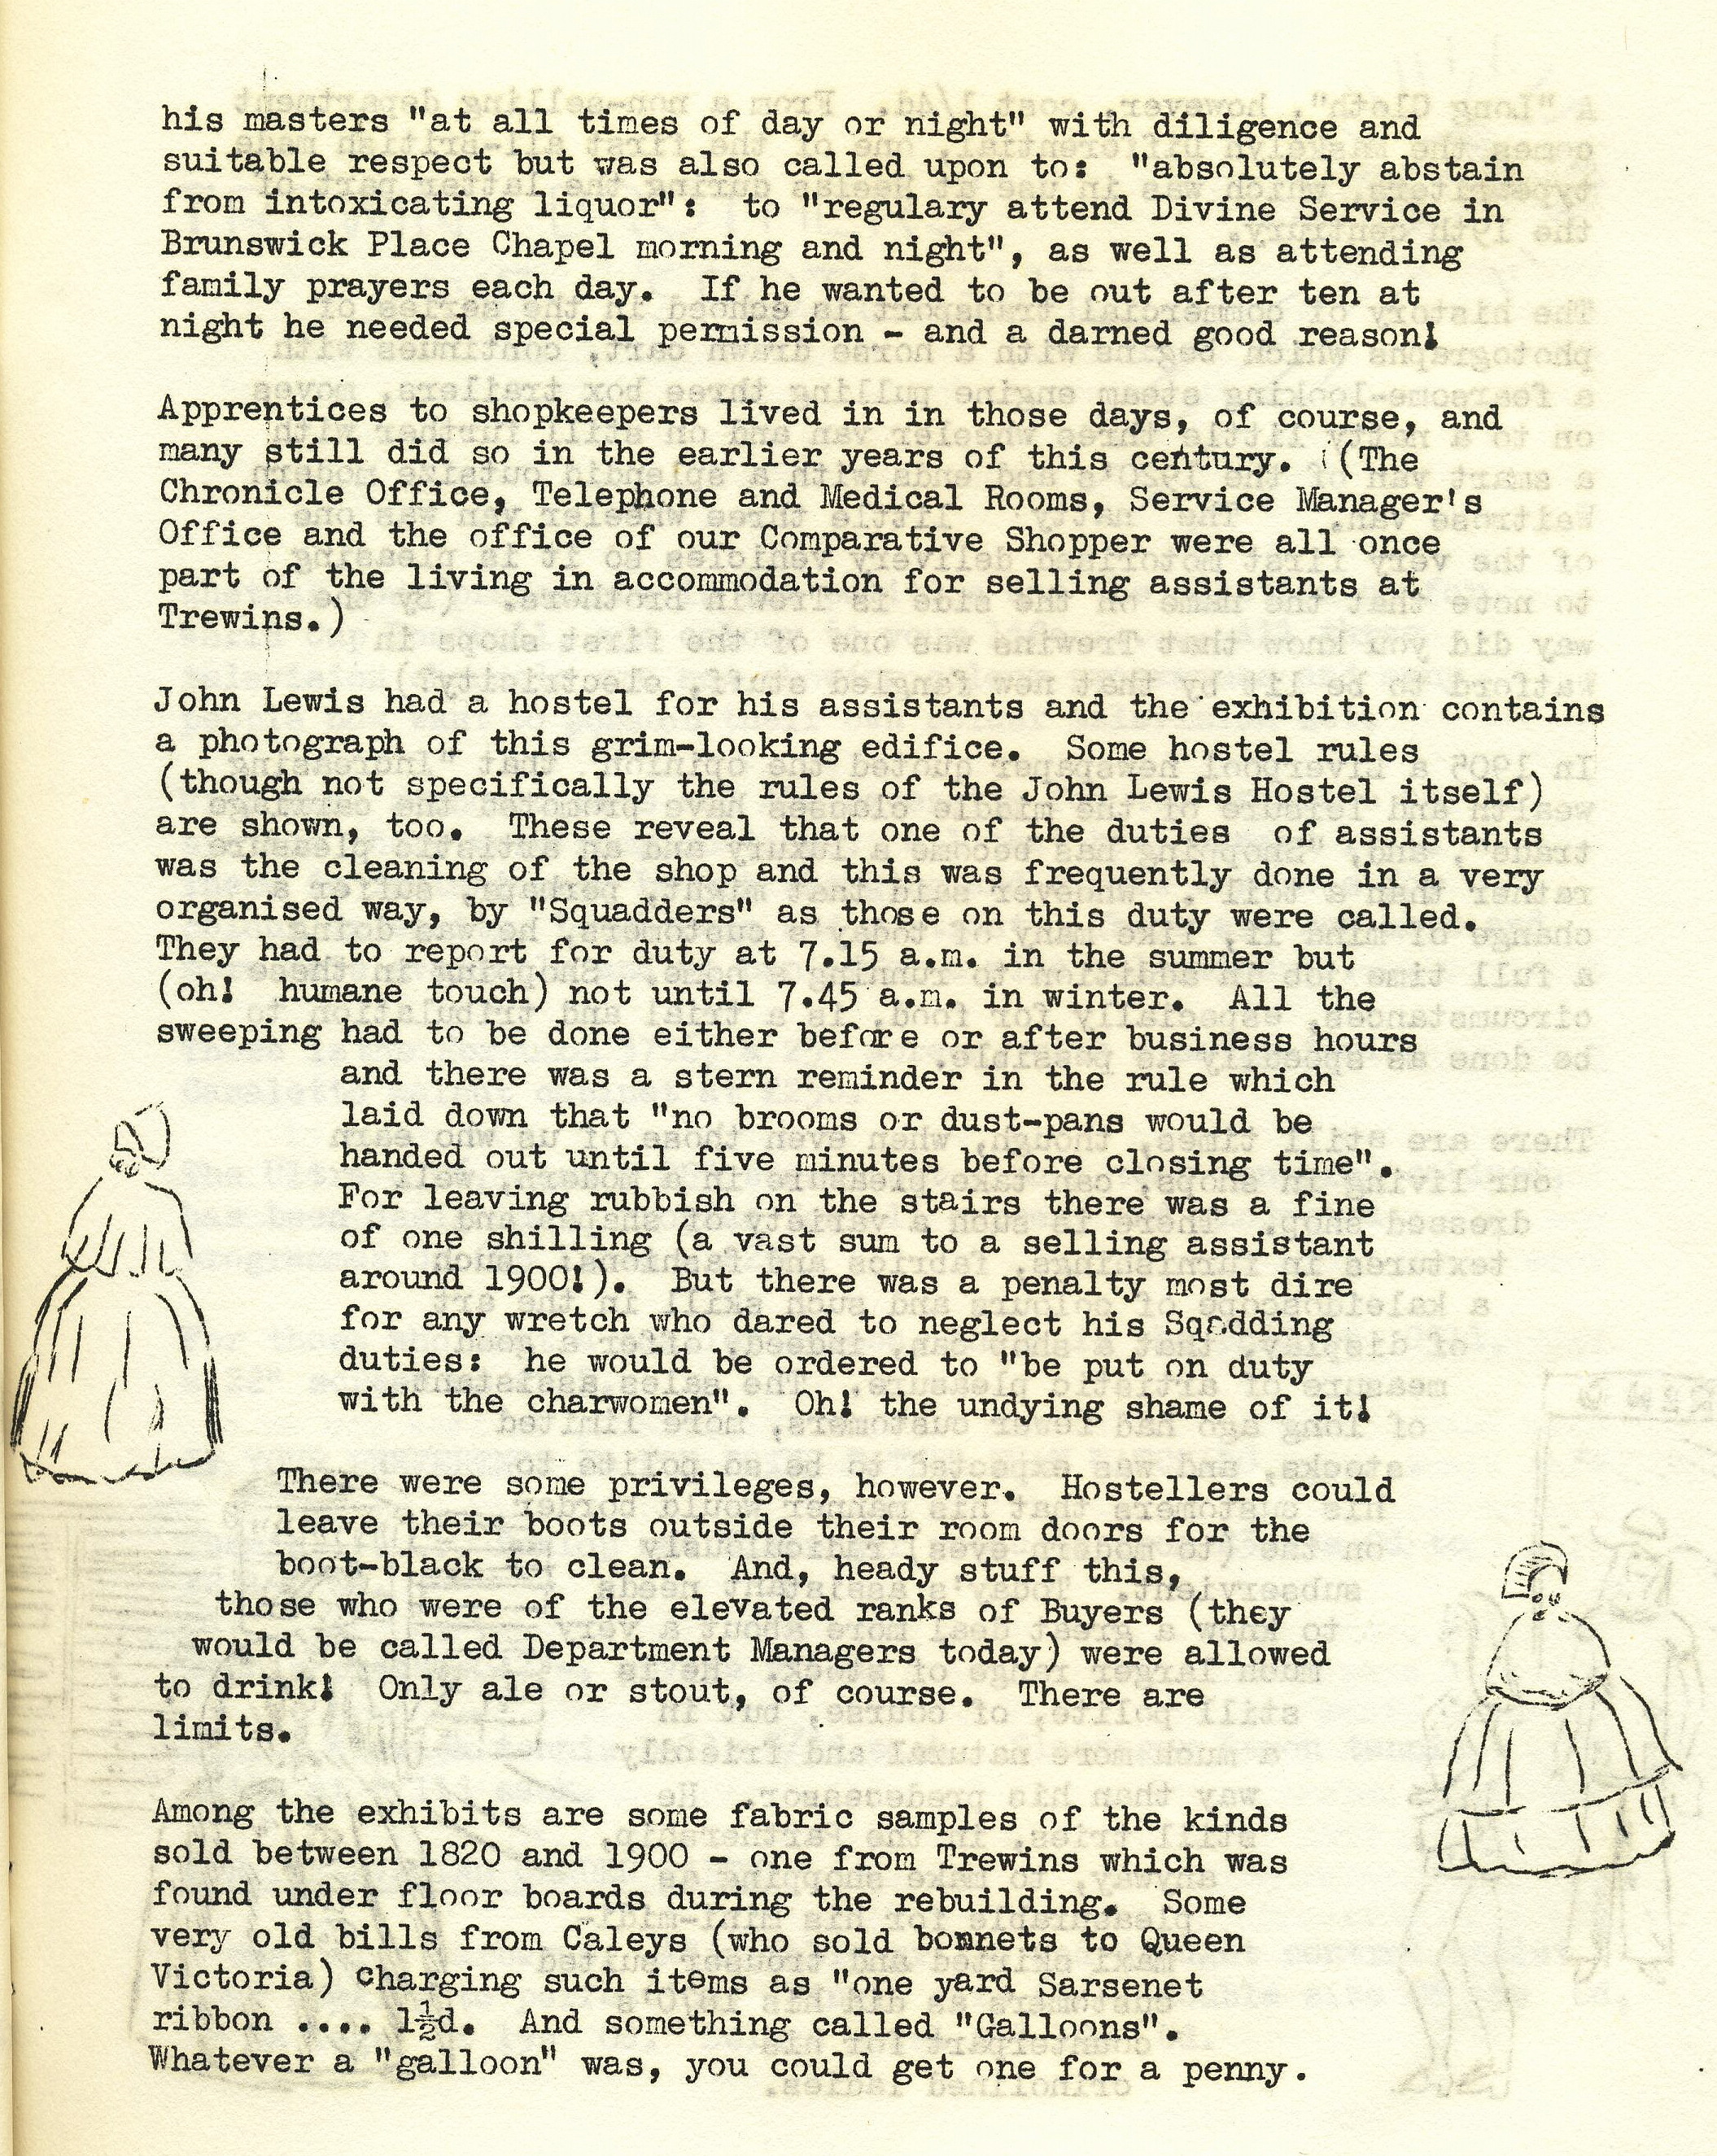 his masters "at all times of day or night" with diligence and
suitable respect but was also called upon to:  "absolutely abstain
from intoxicating liquor":  to "regulary attend Divine Service in
Brunswick Place Chapel morning and night", as well as attending
family prayers each day.  If he wanted to be out after ten at
night he needed special permission - and a darned good reason!

Apprentices to shopkeepers lived in in those days, of course, and
many still did so in the earlier years of this century.  (The
Chronicle Office, Telephone and Medical Rooms, Service Manager's
Office and the office of our Comparative Shopper were all once
part of the living in accommodation for selling assistants at
Trewins.)

John Lewis had a hostel for his assistants and the exhibition contains
a photograph of this grim-looking edifice.  Some hostel rules
(though not specifically the rules of the John Lewis Hostel itself)
are shown, too.  These reveal that one of the duties  of assistants
was the cleaning of the shop and this was frequently done in a very
organised way, by "Squadders" as those on this duty were called.
They had to report for duty at 7.15 a.m. in the summer but
(oh!  humane touch) not until 7.45 a.m. in winter.  All the
sweeping had to be done either before or after business hours
and there was a stern reminder in the rule which
laid down that "no brooms or dust-pans would be
handed out until five minutes before closing time".
For leaving rubbish on the stairs there was a fine
of one shilling (a vast sum to a selling assistant
around 1900!).  But there was a penalty most dire
for any wretch who dared to neglect his Sqadding
duties:  he would be ordered to "be put on duty
with the charwomen".  Oh! the undying shame of it!

There were some privileges, however.  Hostellers could
leave their boots outside their room doors for the
boot-black to clean.  And, heady stuff this,
those who were of the elevated ranks of Buyers (they
would be called Department Managers today) were allowed
to drink!  Only ale or stout, of course.  There are
limits.

Among the exhibits are some fabric samples of the kinds
sold between 1820 and 1900 - one from Trewins which was
found under floor boards during the rebuilding.  Some
very old bills from Caleys (who sold bonnets to Queen
Victoria) charging such items as "one yard Sarsenet
ribbon .... 1½d.  And something called "Galloons".
Whatever a "galloon" was, you could get one for a penny.